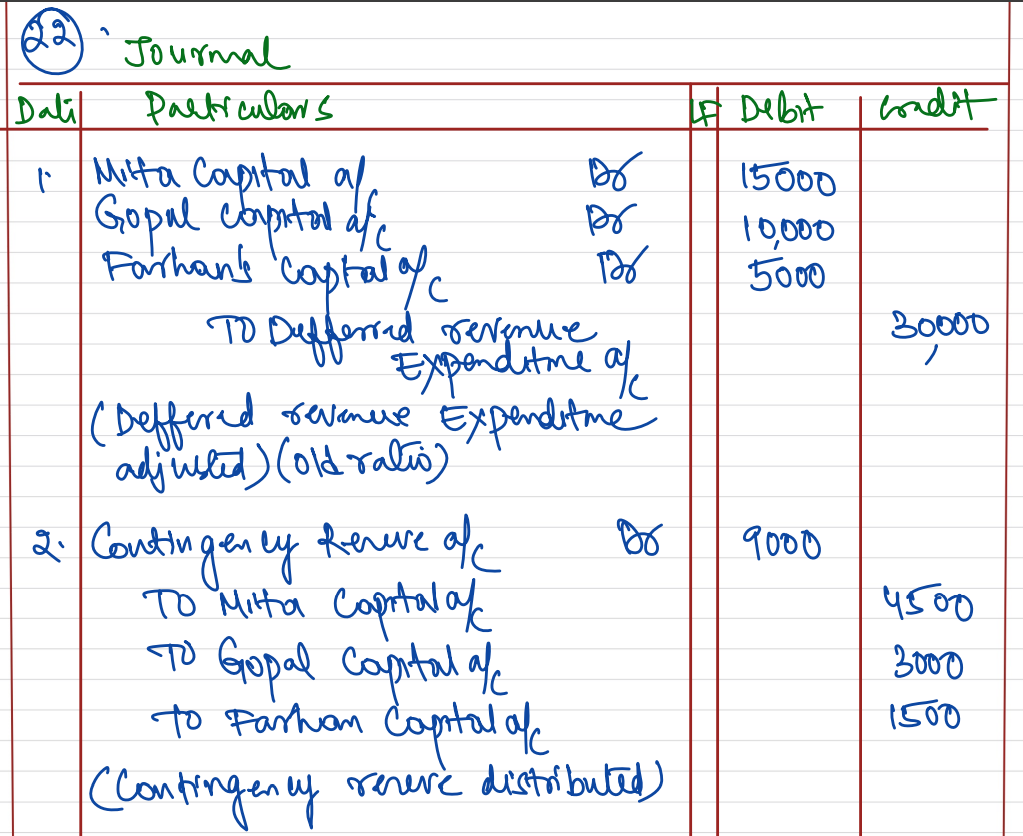 22.
Journal
Date Particulars LF Debit Credit
1. Mitta Capital a/ Dr 15000
Gopal Capital a/c Dr 10,000
Farhan's Capital a/c Dr 5000
To Defferred revenue 30000
Expenditure a/c
(Deffered revenue Expenditure
adjusted) (old ratio)
2. Contingency Reserve a/c Dr 9000
To Mitta Capital a/c 4500
To Gopal Capital a/c 3000
To Farhan Capital a/c 1500
(Contingency reserve distributed)